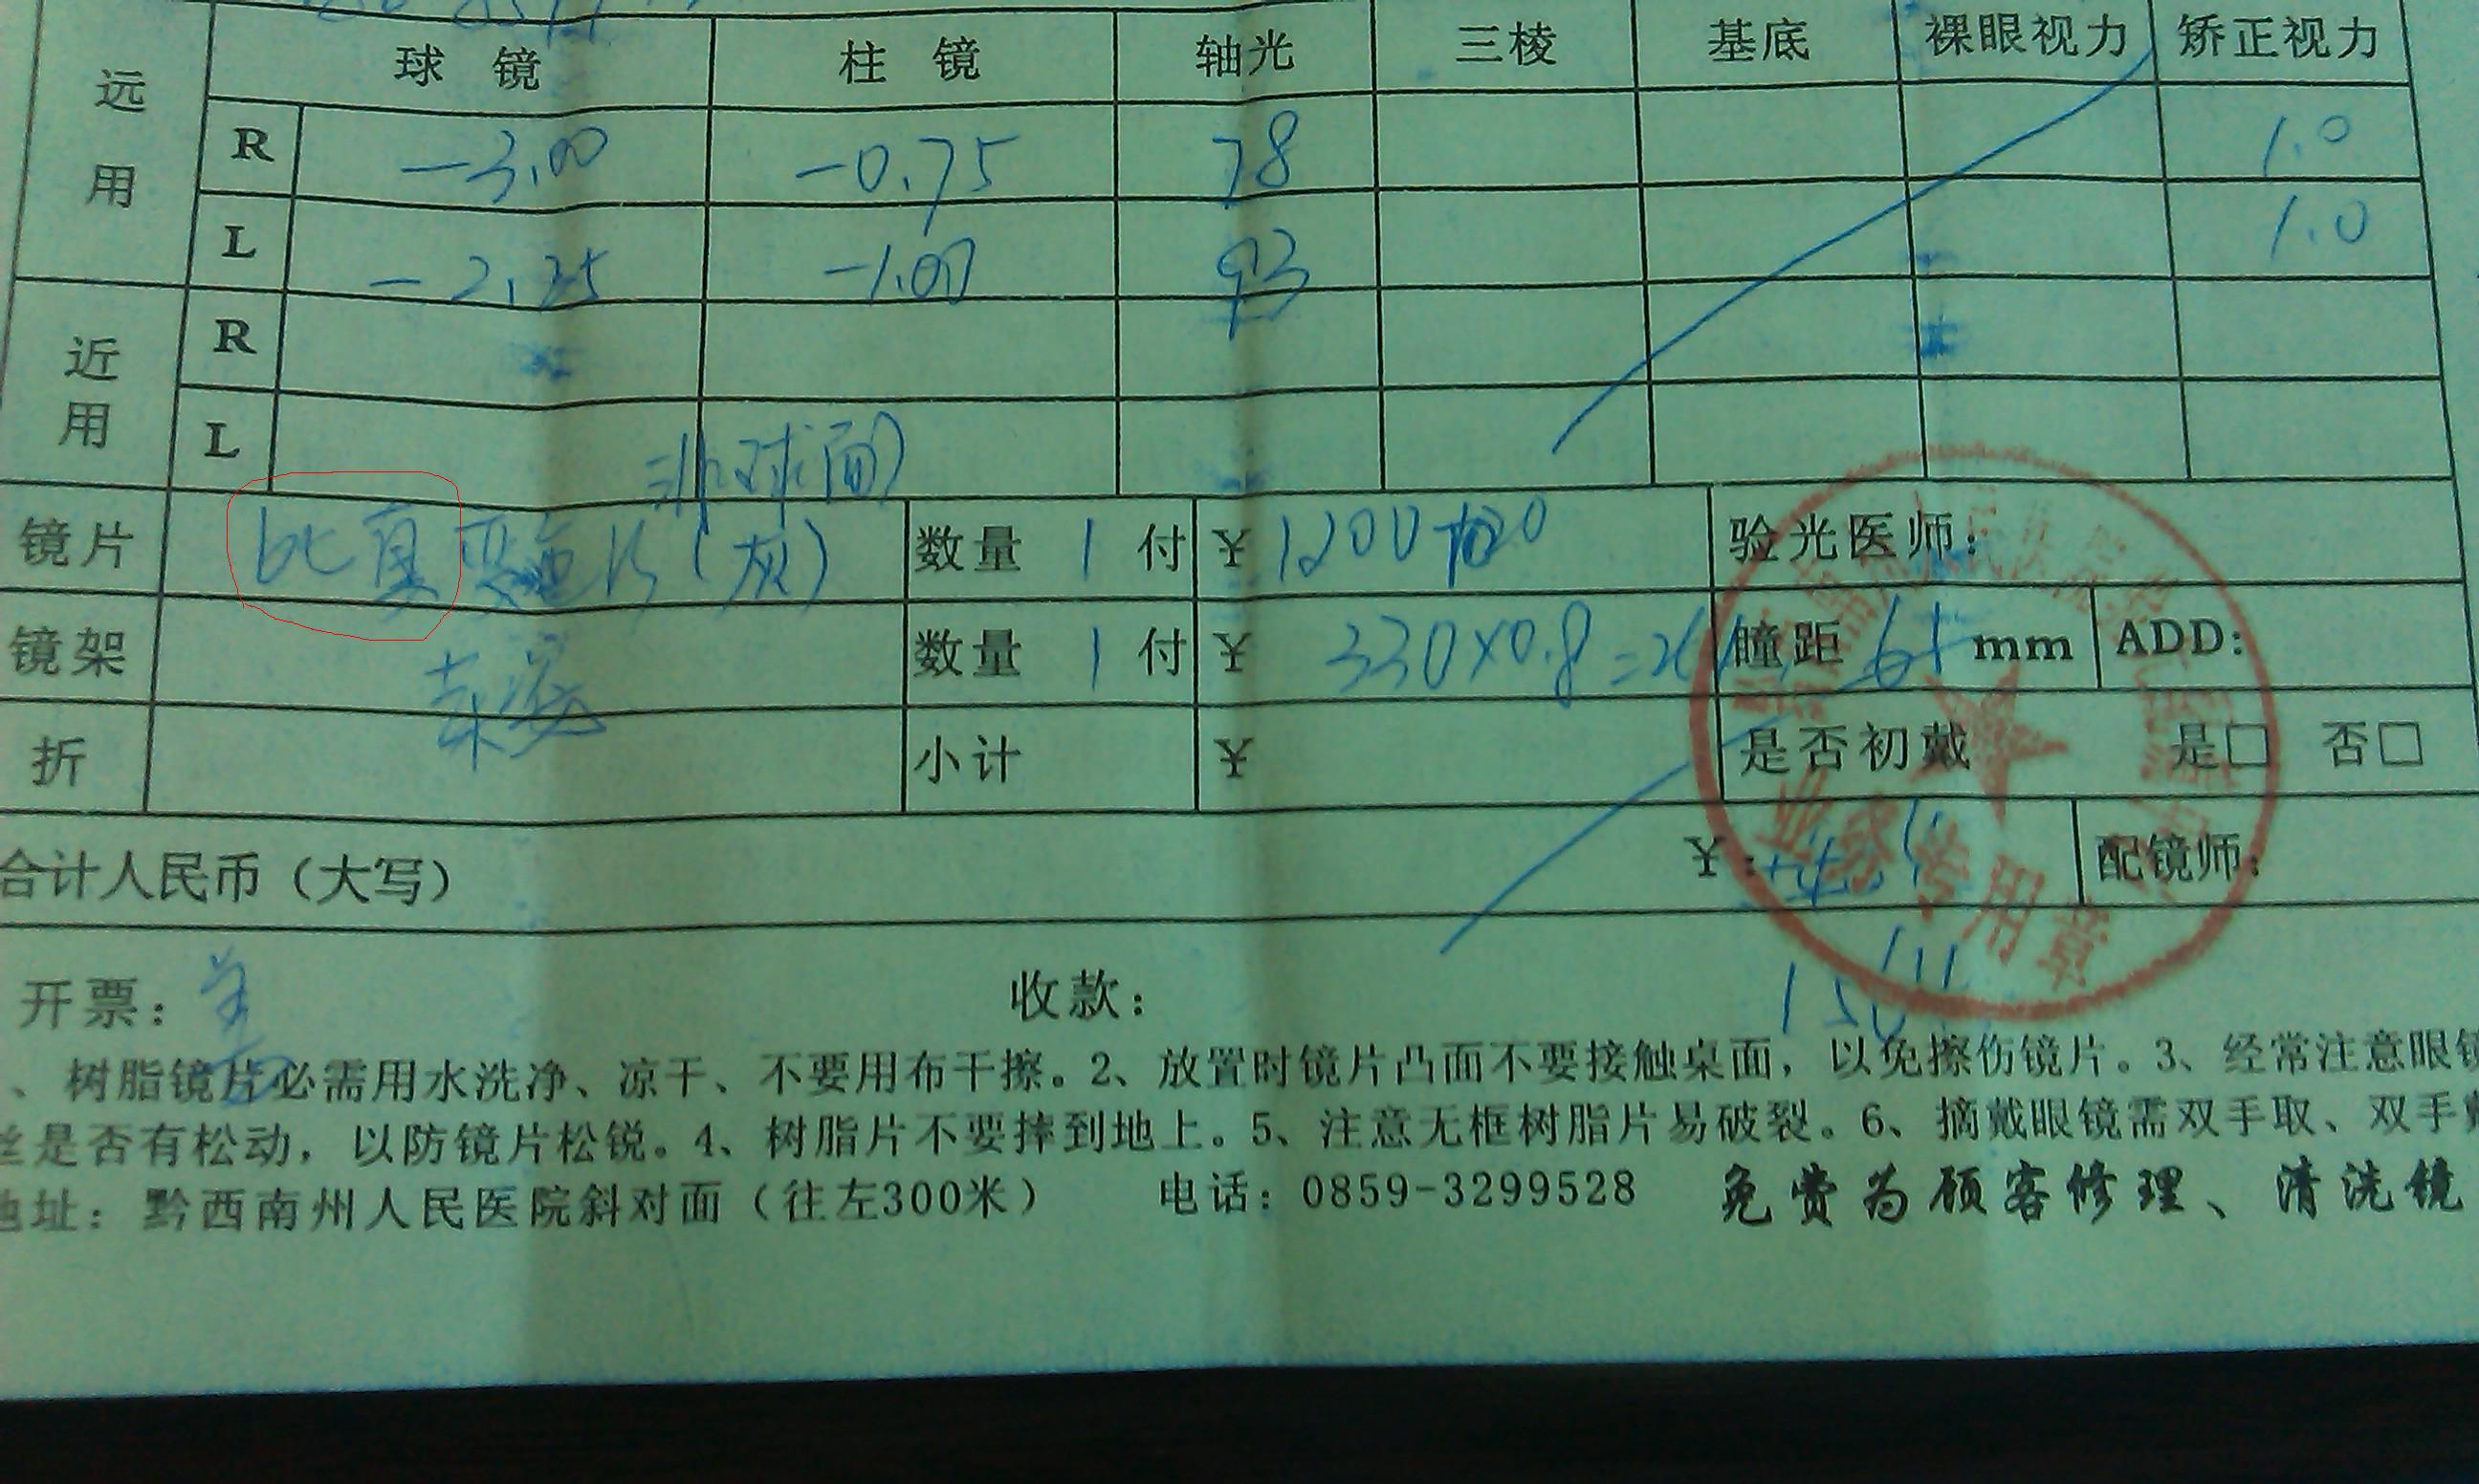 远用 球镜 柱镜 轴光 三棱 基底 裸眼视力 矫正视力
R -3.00 -0.75 78 1.0
L -2.25 -1.00 93 1.0
近用 R
L
非球面
镜片 变色片(灰) 数量 1 付 ¥ 1200
镜架 数量 1 付 ¥ 330×0.8= 瞳距 mm ADD:
折 小计 ¥ 是否初戴 是□ 否□
验光医师:
合计人民币(大写) ¥: 配镜师:
业务专用章
开票: 收款:
、树脂镜片必需用水洗净、凉干、不要用布干擦。2、放置时镜片凸面不要接触桌面,以免擦伤镜片。3、经常注意眼镜
丝是否有松动,以防镜片松锐。4、树脂片不要摔到地上。5、注意无框树脂片易破裂。6、摘戴眼镜需双手取、双手戴
地址:黔西南州人民医院斜对面(往左300米) 电话:0859-3299528 免费为顾客修理、清洗镜